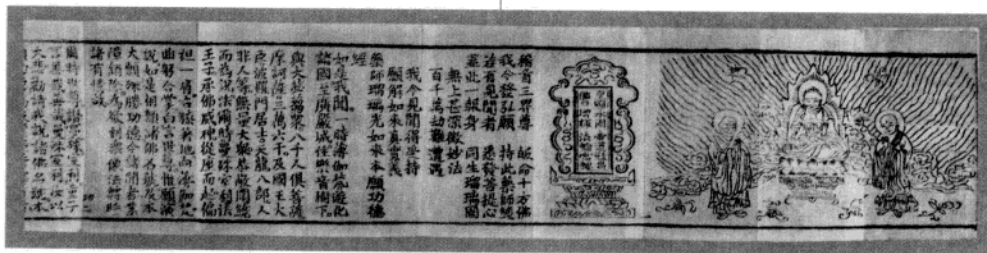 稽首三界尊　皈命十方佛
我今發弘願　持此藥師經
若有見聞者　悉發菩提心
盡此一報身　同生瑠璃國
無上甚深微妙法
百千萬劫難遭遇
我今見聞得受持
願解如來真實義
藥師瑠璃光如來本願功德
經
如是我聞一時薄伽梵遊化
諸國至廣嚴城住樂音樹下
與大苾芻衆八千人俱菩薩
摩訶薩三萬六千及國王大
臣婆羅門居士天龍八部人
非人等無量大衆恭敬圍繞
而為說法爾時曼殊室利法
王子承佛威神從座而起偏
袒一肩右膝著地向薄伽梵
曲躬合掌白言世尊惟願演
說如是相類諸佛名號及本
大願殊勝功德令諸聞者業
障銷除為欲利樂像法轉時
諸有情故
爾時世尊讚曼殊室利童子
言善哉善哉曼殊室利汝以
大悲勸請我說諸佛名號本